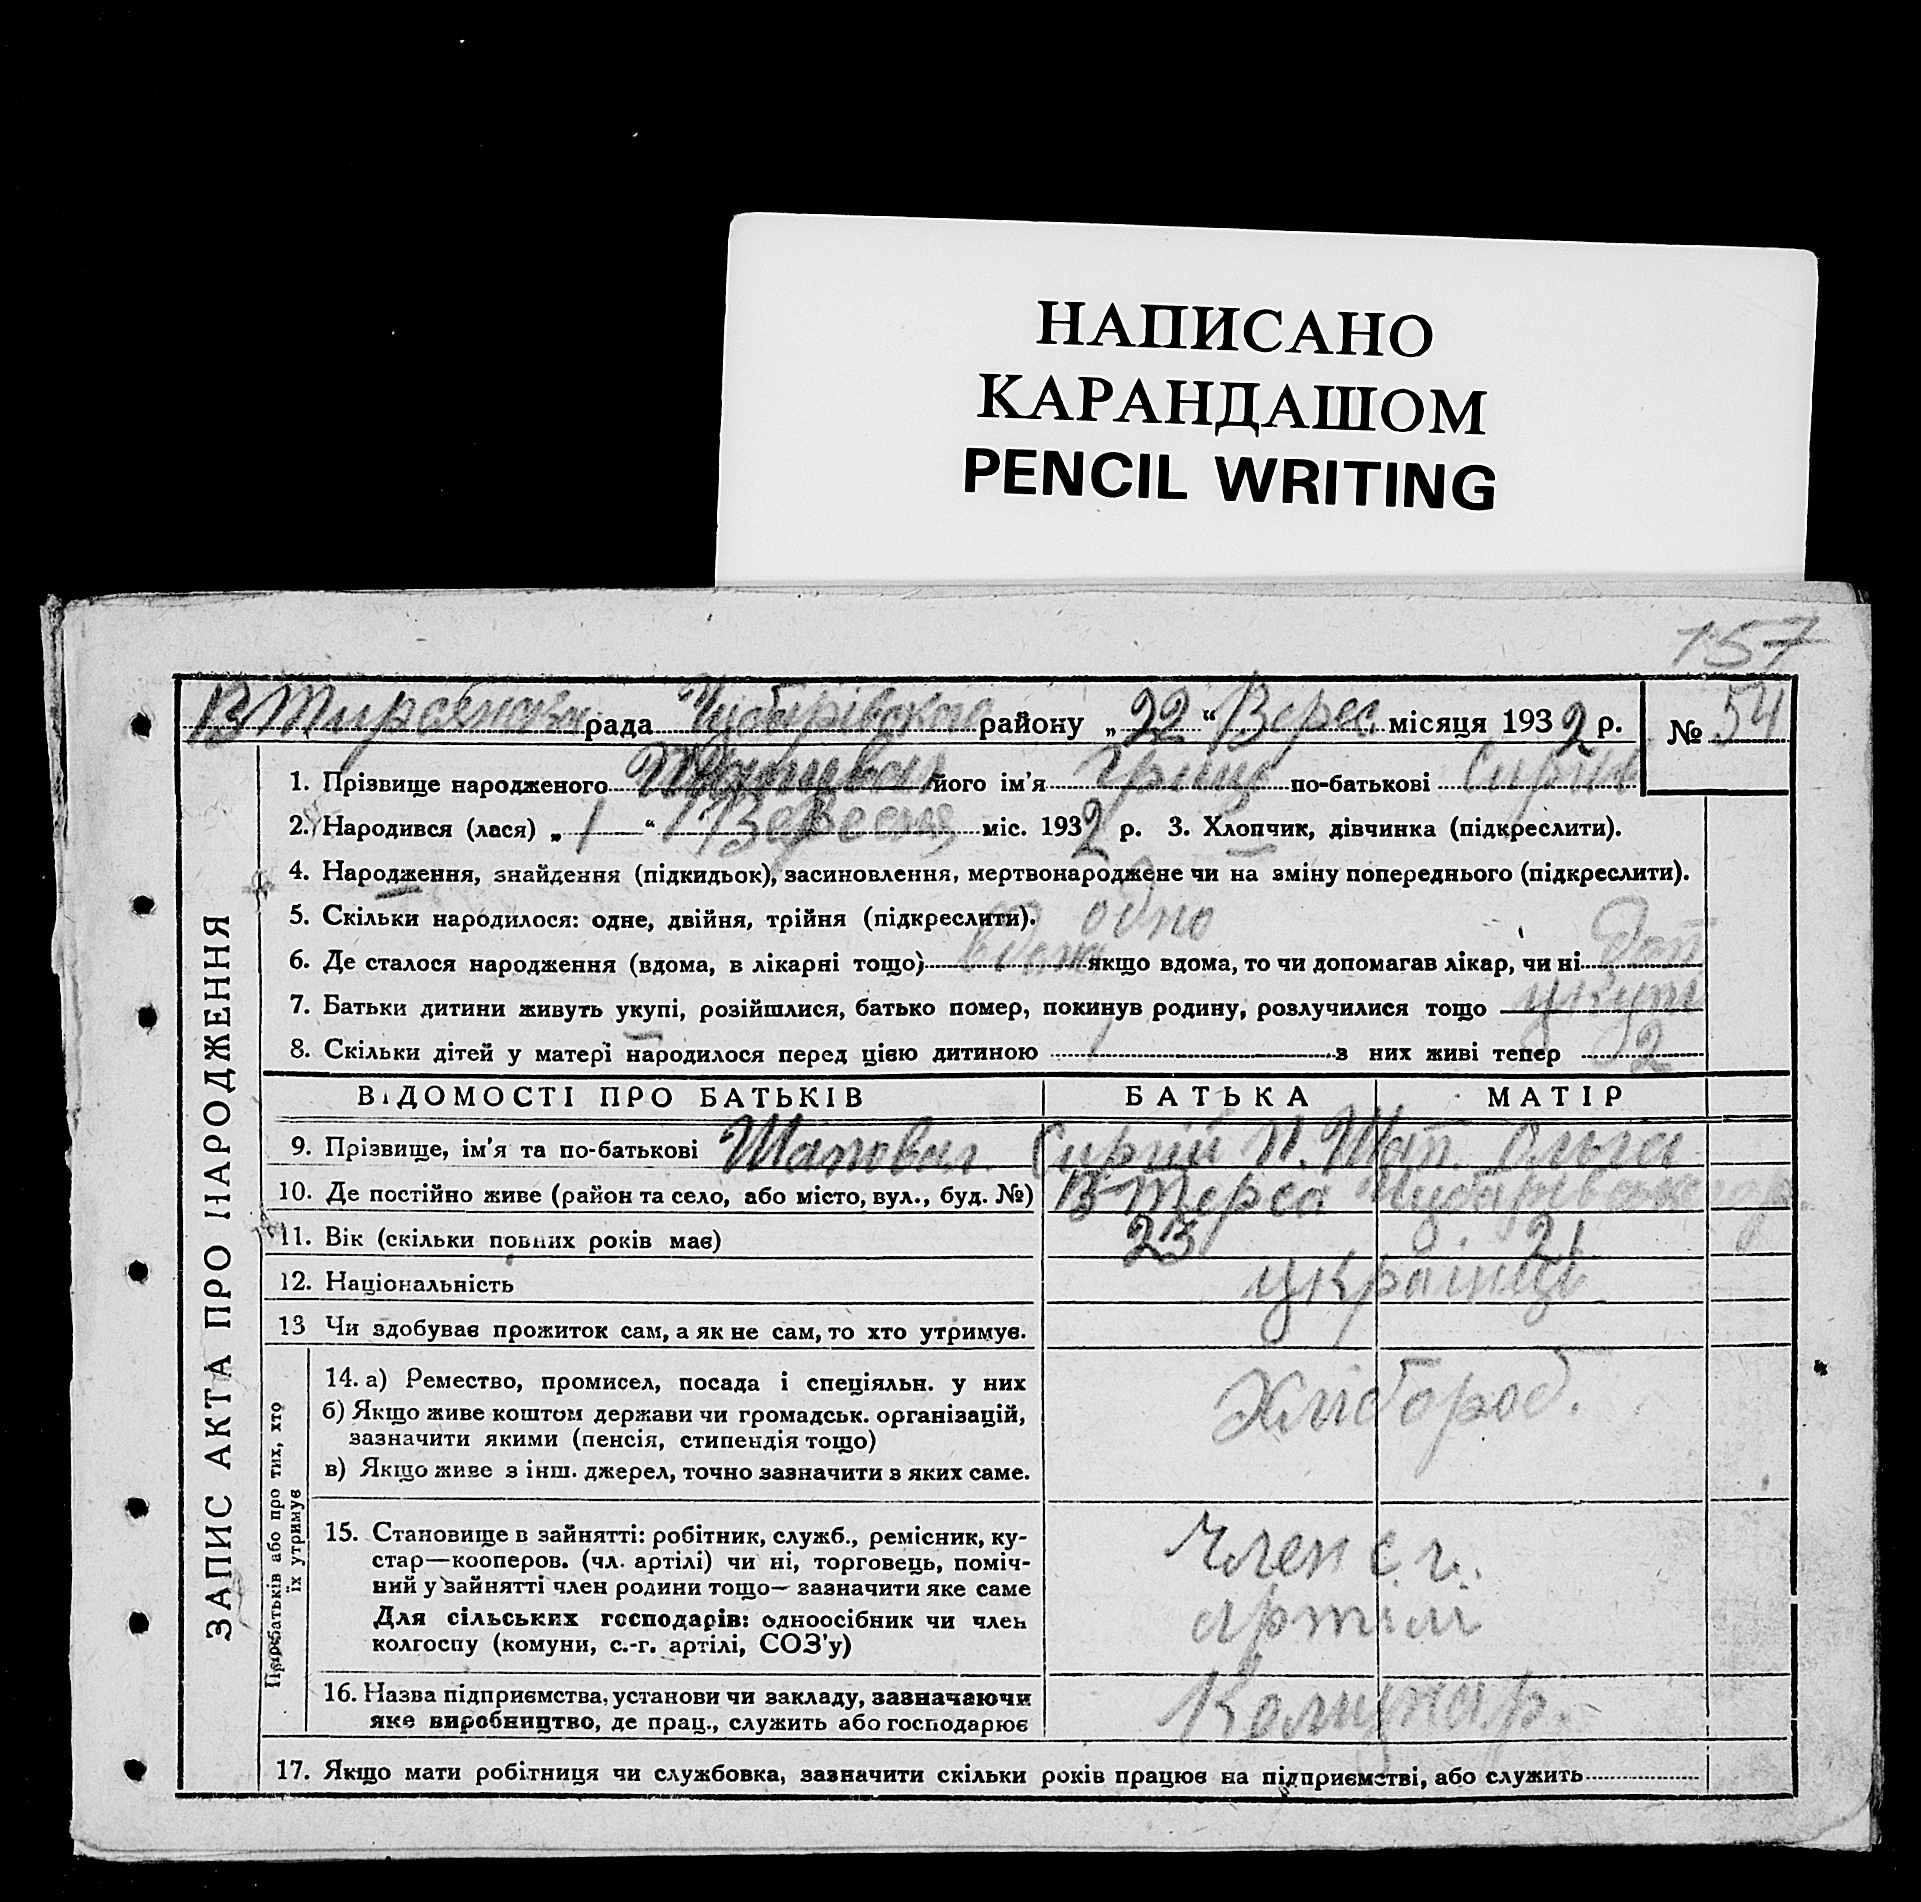 НАПИСАНО
КАРАНДАШОМ
PENCIL WRITING
157
ЗАПИС АКТА ПРО НАРОДЖЕННЯ
рада Чубарівського району „22“ Верес місяця 1932 р. № 54
1. Прізвище народженого Шаповал його ім'я Гриць по-батькові
2. Народився (лася) „1“ Вересня міс. 1932 р. 3. Хлопчик, дівчинка (підкреслити).
4. Народження, знайдення (підкидьок), засиновлення, мертвонароджене чи на зміну попереднього (підкреслити).
5. Скільки народилося: одне, двійня, трійня (підкреслити). одно
6. Де сталося народження (вдома, в лікарні тощо) вдома якщо вдома, то чи допомагав лікар, чи ні
7. Батьки дитини живуть укупі, розійшлися, батько помер, покинув родину, розлучилися тощо укупі
8. Скільки дітей у матері народилося перед цією дитиною 1 з них живі тепер 2
ВІДОМОСТІ ПРО БАТЬКІВ БАТЬКА МАТІР
9. Прізвище, ім'я та по-батькові Шаповал Сиргій П. Шап. Ольга
10. Де постійно живе (район та село, або місто, вул., буд. №) В-Терса
11. Вік (скільки повних років має) 23 21
12. Національність українці
13 Чи здобуває прожиток сам, а як не сам, то хто утримує.
Про батьків або про тих, хто їх утримує
14. а) Ремество, промисел, посада і спеціяльн. у них Хлібороб.
б) Якщо живе коштом держави чи громадськ. організацій,
зазначити якими (пенсія, стипендія тощо)
в) Якщо живе з інш. джерел, точно зазначити з яких саме.
15. Становище в зайнятті: робітник, служб., ремісник, ку-
стар—кооперов. (чл. артілі) чи ні, торговець, поміч-
ний у зайнятті член родини тощо— зазначити яке саме
Для сільських господарів: одноосібник чи член
колгоспу (комуни, с.-г. артілі, СОЗ'у)
Член с. г.
артілі
16. Назва підприємства, установи чи закладу, зазначаючи
яке виробництво, де прац., служить або господарює
17. Якщо мати робітниця чи службовка, зазначити скільки років працює на підприємстві, або служить